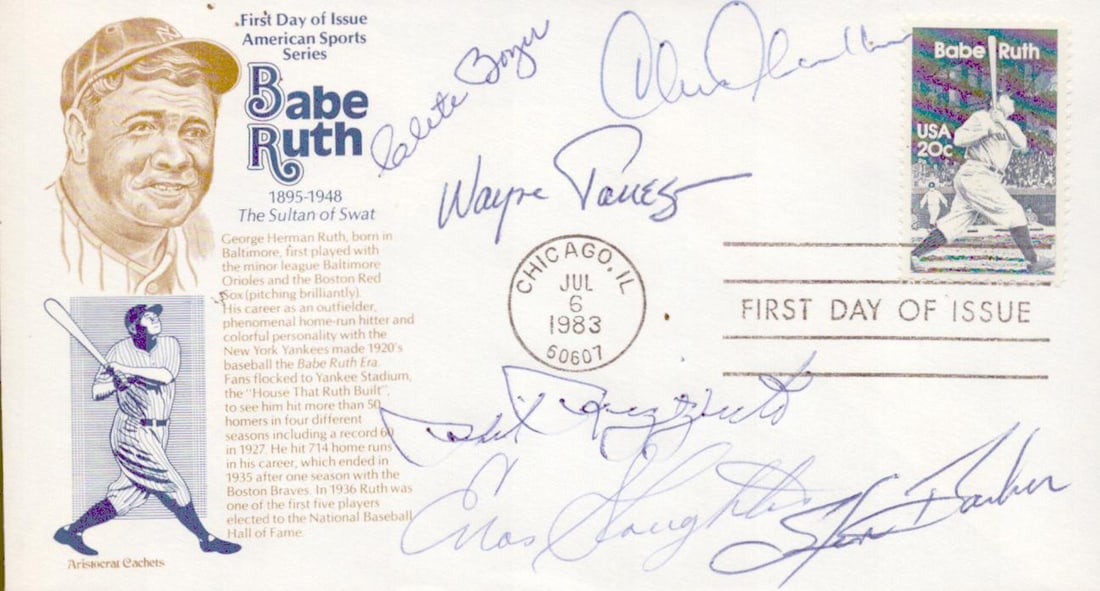 First Day of Issue
American Sports
Series
Babe
Ruth
1895-1948
The Sultan of Swat
George Herman Ruth, born in
Baltimore, first played with
the minor league Baltimore
Orioles and the Boston Red
Sox (pitching brilliantly).
His career as an outfielder,
phenomenal home-run hitter and
colorful personality with the
New York Yankees made 1920's
baseball the Babe Ruth Era.
Fans flocked to Yankee Stadium,
the "House That Ruth Built",
to see him hit more than 50
homers in four different
seasons including a record 60
in 1927. He hit 714 home runs
in his career, which ended in
1935 after one season with the
Boston Braves. In 1936 Ruth was
one of the first five players
elected to the National Baseball
Hall of Fame.
Aristocrat Cachets
Clete Boyer
Wayne
CHICAGO, IL
JUL
6
1983
60607
Babe Ruth
USA
20c
FIRST DAY OF ISSUE
Phil Rizzuto
Enos Slaughter
Barker